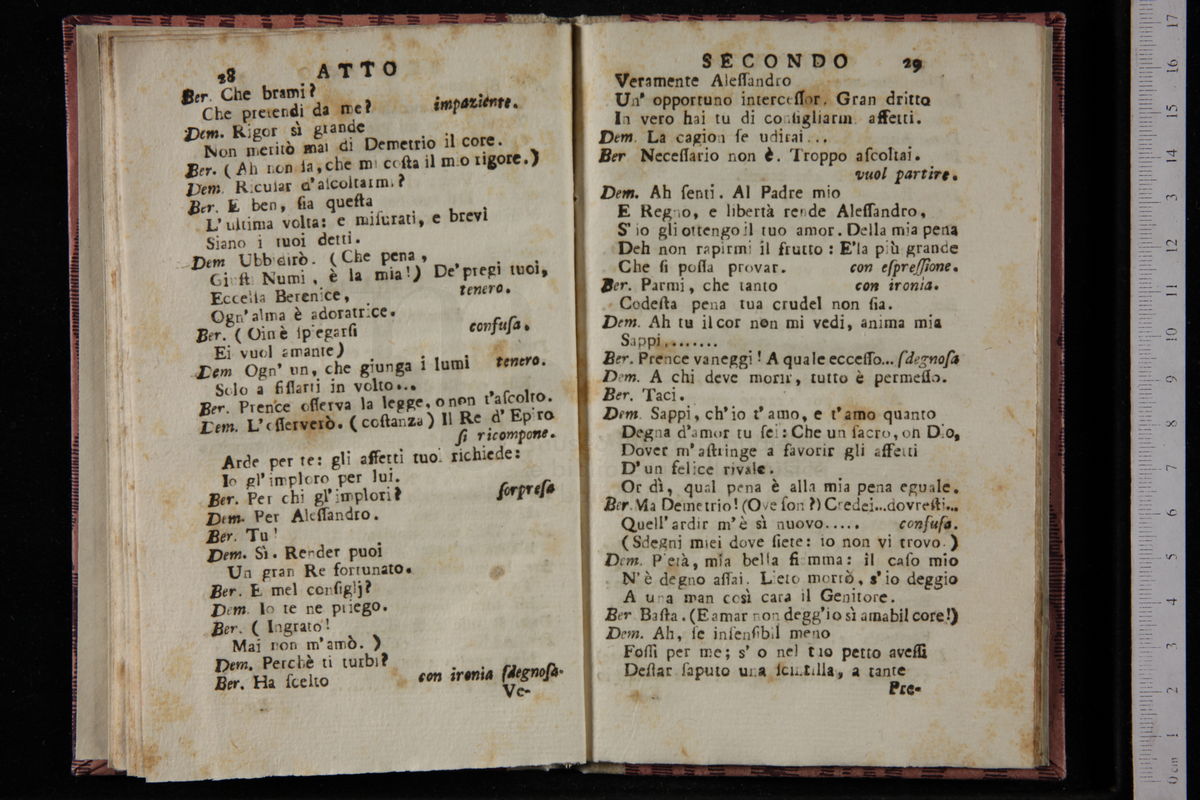 28 ATTO
Ber. Che brami?
Che pretendi da me? impaziente.
Dem. Rigor sì grande
Non meritò mai di Demetrio il core.
Ber. (Ah non ſa, che mi coſta il mio rigore.)
Dem. Ricuſar d'aſcoltarmi?
Ber. E ben, ſia queſta
L'ultima volta: e miſurati, e brevi
Siano i tuoi detti.
Dem Ubbidirò. (Che pena,
Giuſti Numi, è la mia!) De' pregi tuoi,
Eccelſa Berenice, tenero.
Ogn' alma è adoratrice.
Ber. (Oimè ſpiegarſi confuſa.
Ei vuol amante)
Dem Ogn' un, che giunga i lumi tenero.
Solo a fiſſarti in volto...
Ber. Prence oſſerva la legge, o non t'aſcolto.
Dem. L'oſſerverò. (coſtanza) Il Re d' Epiro
ſi ricompone.
Arde per te: gli affetti tuoi richiede:
Io gl' imploro per lui.
Ber. Per chi gl' implori? ſorpreſa
Dem. Per Aleſſandro.
Ber. Tu!
Dem. Sì. Render puoi
Un gran Re fortunato.
Ber. E mel conſiglj?
Dem. Io te ne priego.
Ber. (Ingrato!
Mai non m'amò.)
Dem. Perchè ti turbi?
Ber. Ha ſcelto con ironia ſdegnoſa.
Ve-
SECONDO 29
Veramente Aleſſandro
Un' opportuno interceſſor. Gran dritto
In vero hai tu di conſigliarmi affetti.
Dem. La cagion ſe udirai...
Ber Neceſſario non è. Troppo aſcoltai.
vuol partire.
Dem. Ah ſenti. Al Padre mio
E Regno, e libertà rende Aleſſandro,
S' io gli ottengo il tuo amor. Della mia pena
Deh non rapirmi il frutto: E' la più grande
Che ſi poſſa provar. con eſpreſſione.
Ber. Parmi, che tanto con ironia.
Codeſta pena tua crudel non ſia.
Dem. Ah tu il cor non mi vedi, anima mia
Sappi........
Ber. Prence vaneggi! A quale ecceſſo... ſdegnoſa
Dem. A chi deve morir, tutto è permeſſo.
Ber. Taci.
Dem. Sappi, ch' io t' amo, e t' amo quanto
Degna d'amor tu ſei: Che un ſacro, oh Dio,
Dover m'aſtringe a favorir gli affetti
D' un felice rivale.
Or dì, qual pena è alla mia pena eguale.
Ber. Ma Demetrio! (Ove ſon?) Credei...dovreſti...
Quell' ardir m'è sì nuovo..... confuſa.
(Sdegni miei dove ſiete: io non vi trovo.)
Dem. Pietà, mia bella fiamma: il caſo mio
N'è degno aſſai. Lieto morrò, s' io deggio
A una man così cara il Genitore.
Ber Baſta. (E amar non degg'io sì amabil core!)
Dem. Ah, ſe inſenſibil meno
Foſſi per me; s' o nel tuo petto aveſſi
Deſtar ſaputo una ſcintilla, a tante
Pre-